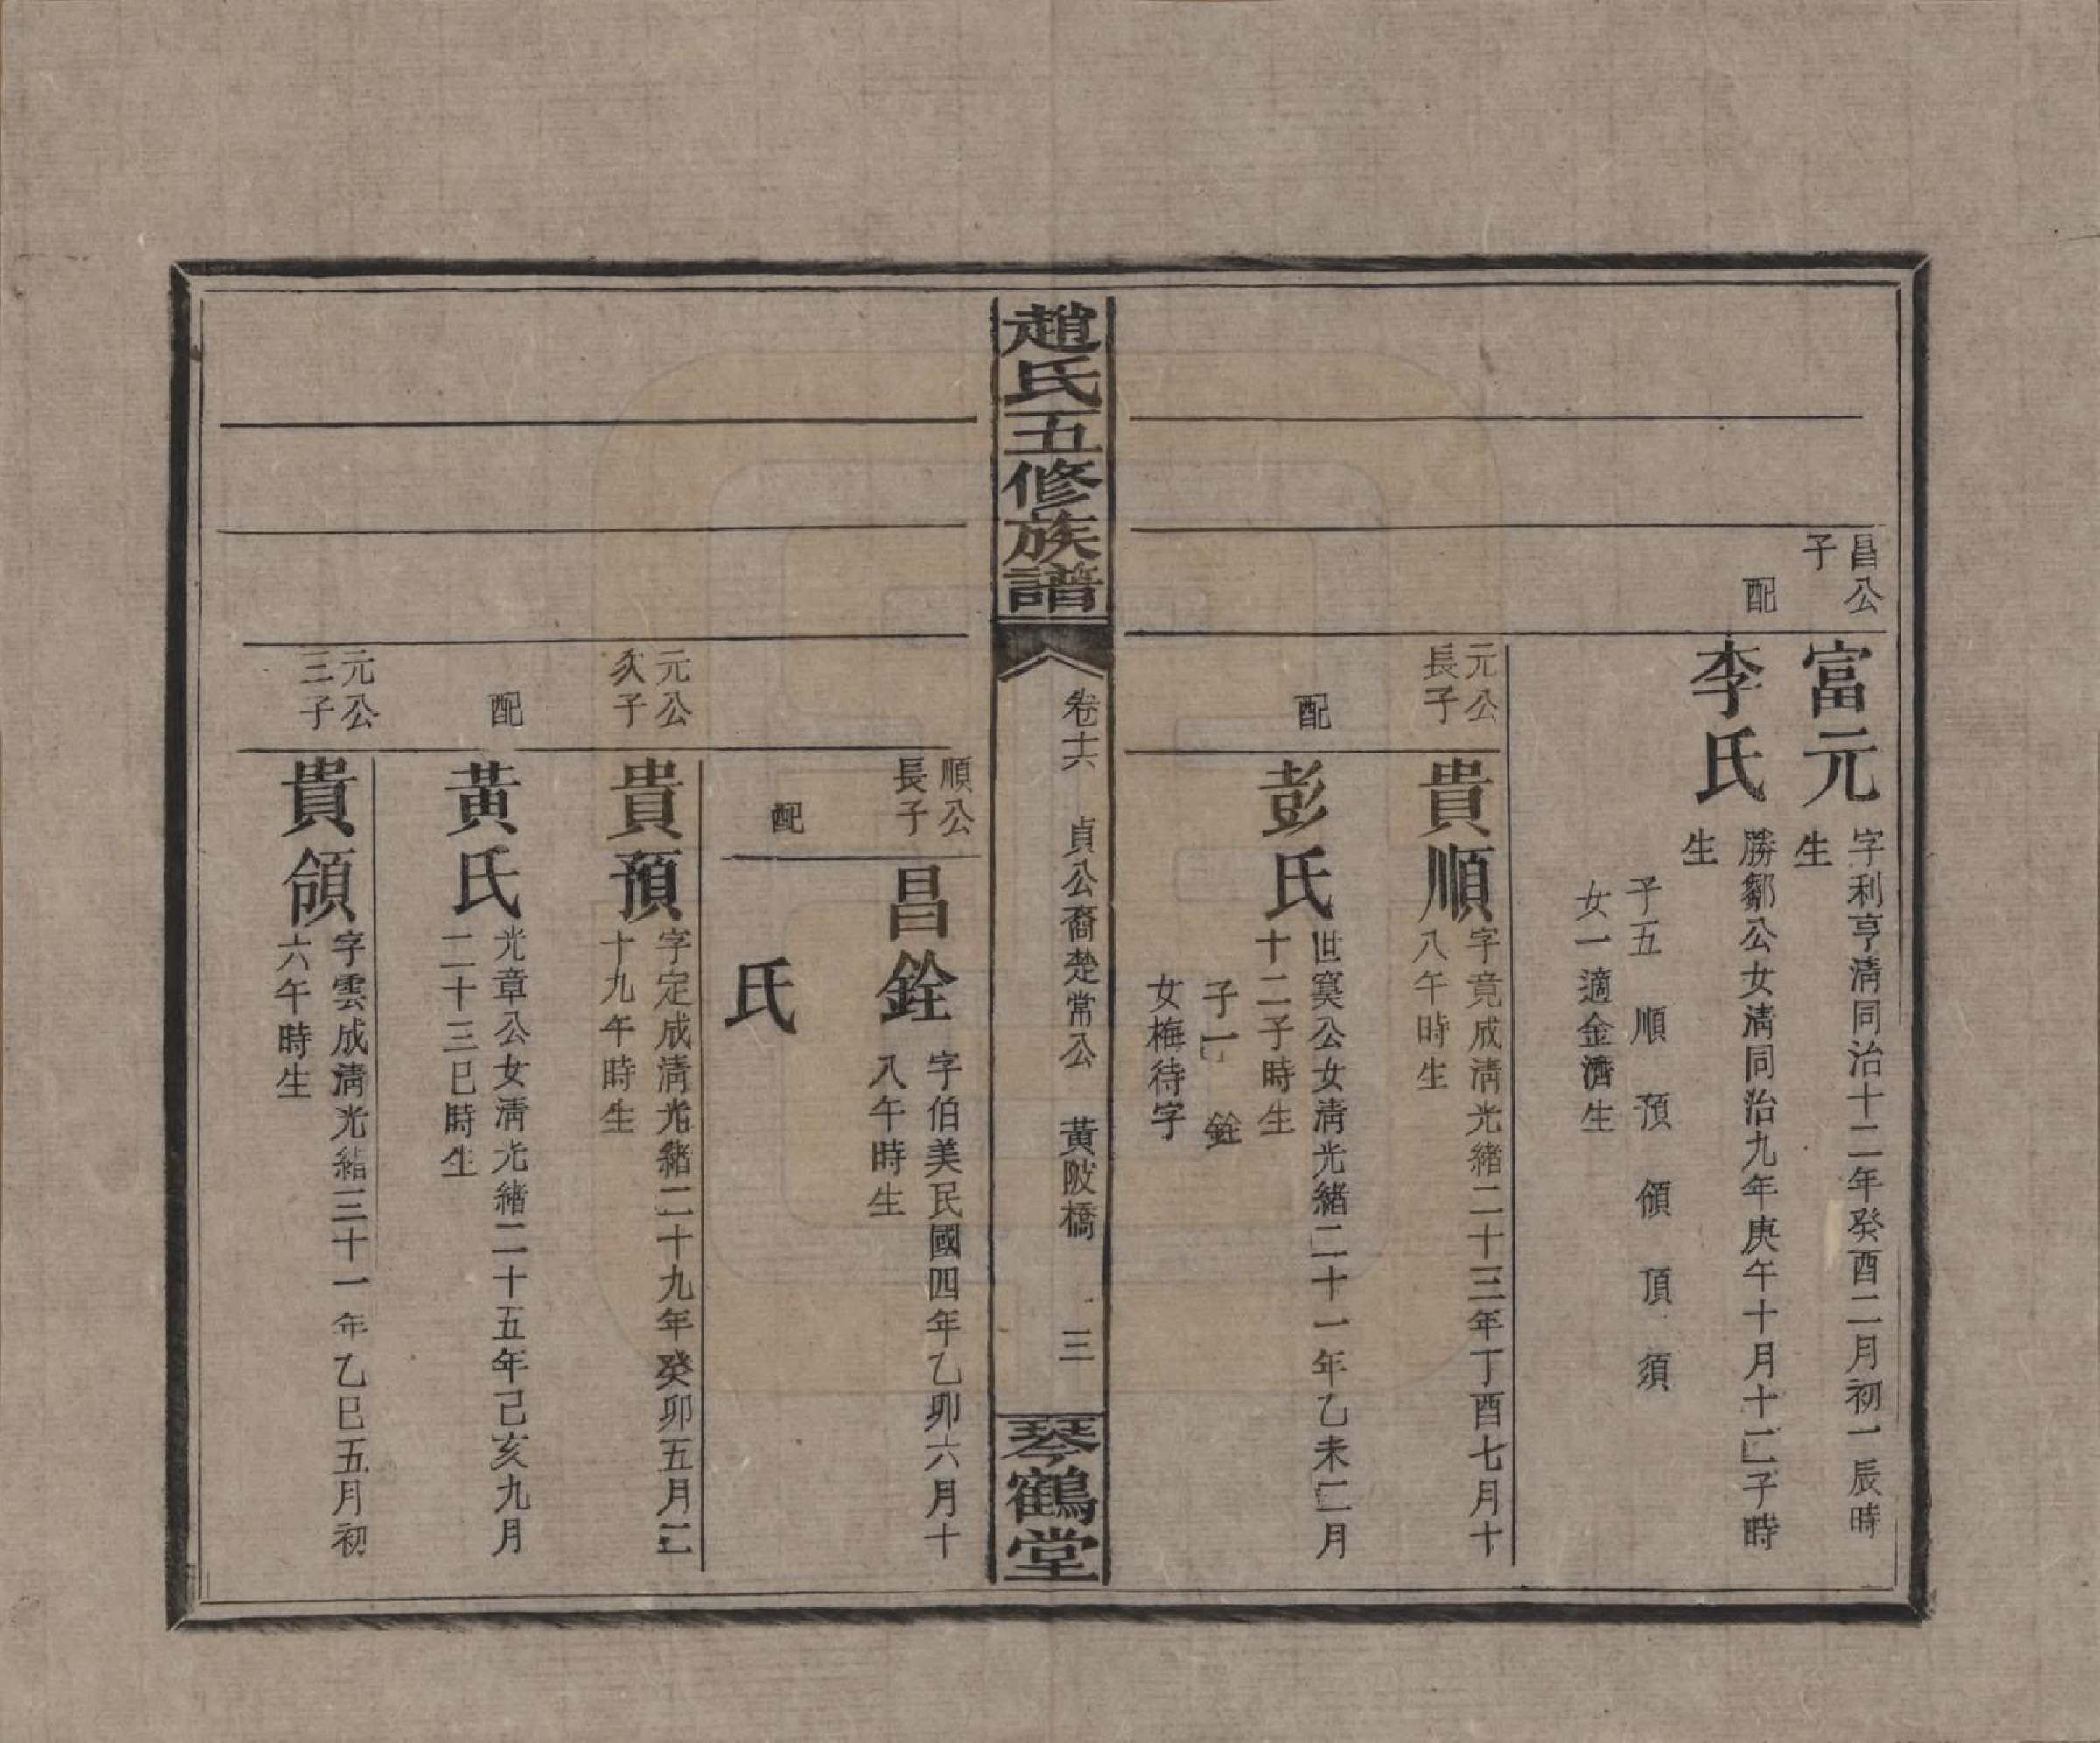 昌公
子
富元
字利亨淸同治十二年癸酉二月初一辰時
生
配
李氏
勝鄒公女淸同治九年庚午十月十二子時
生
子五 順 預 領 頂 須
女一適金濟生
元公
長子
貴順
字竟成淸光緒二十三年丁酉七月十
八午時生
配
彭氏
世寞公女淸光緒二十一年乙未二月
十二子時生
子一 銓
女梅待字
趙氏五修族譜
卷十六 貞公裔楚常公 黃陂橋 三
琴鶴堂
順公
長子
昌銓
字伯美民國四年乙卯六月十
八午時生
配
氏
元公
次子
貴預
字定成淸光緒二十九年癸卯五月二
十九午時生
配
黃氏
光章公女淸光緒二十五年己亥九月
二十三巳時生
元公
三子
貴領
字雲成淸光緒三十一年乙巳五月初
六午時生